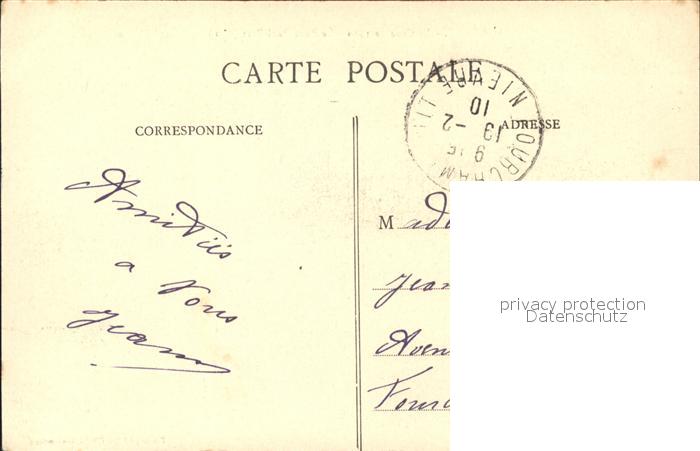 CARTE POSTALE
CORRESPONDANCE
ADRESSE
FOURCHAM NIEVRE
9 15
19 - 2
10
Amitiés
a Vous
Jeann
M ad
Jean
Aven
Four
privacy protection
Datenschutz